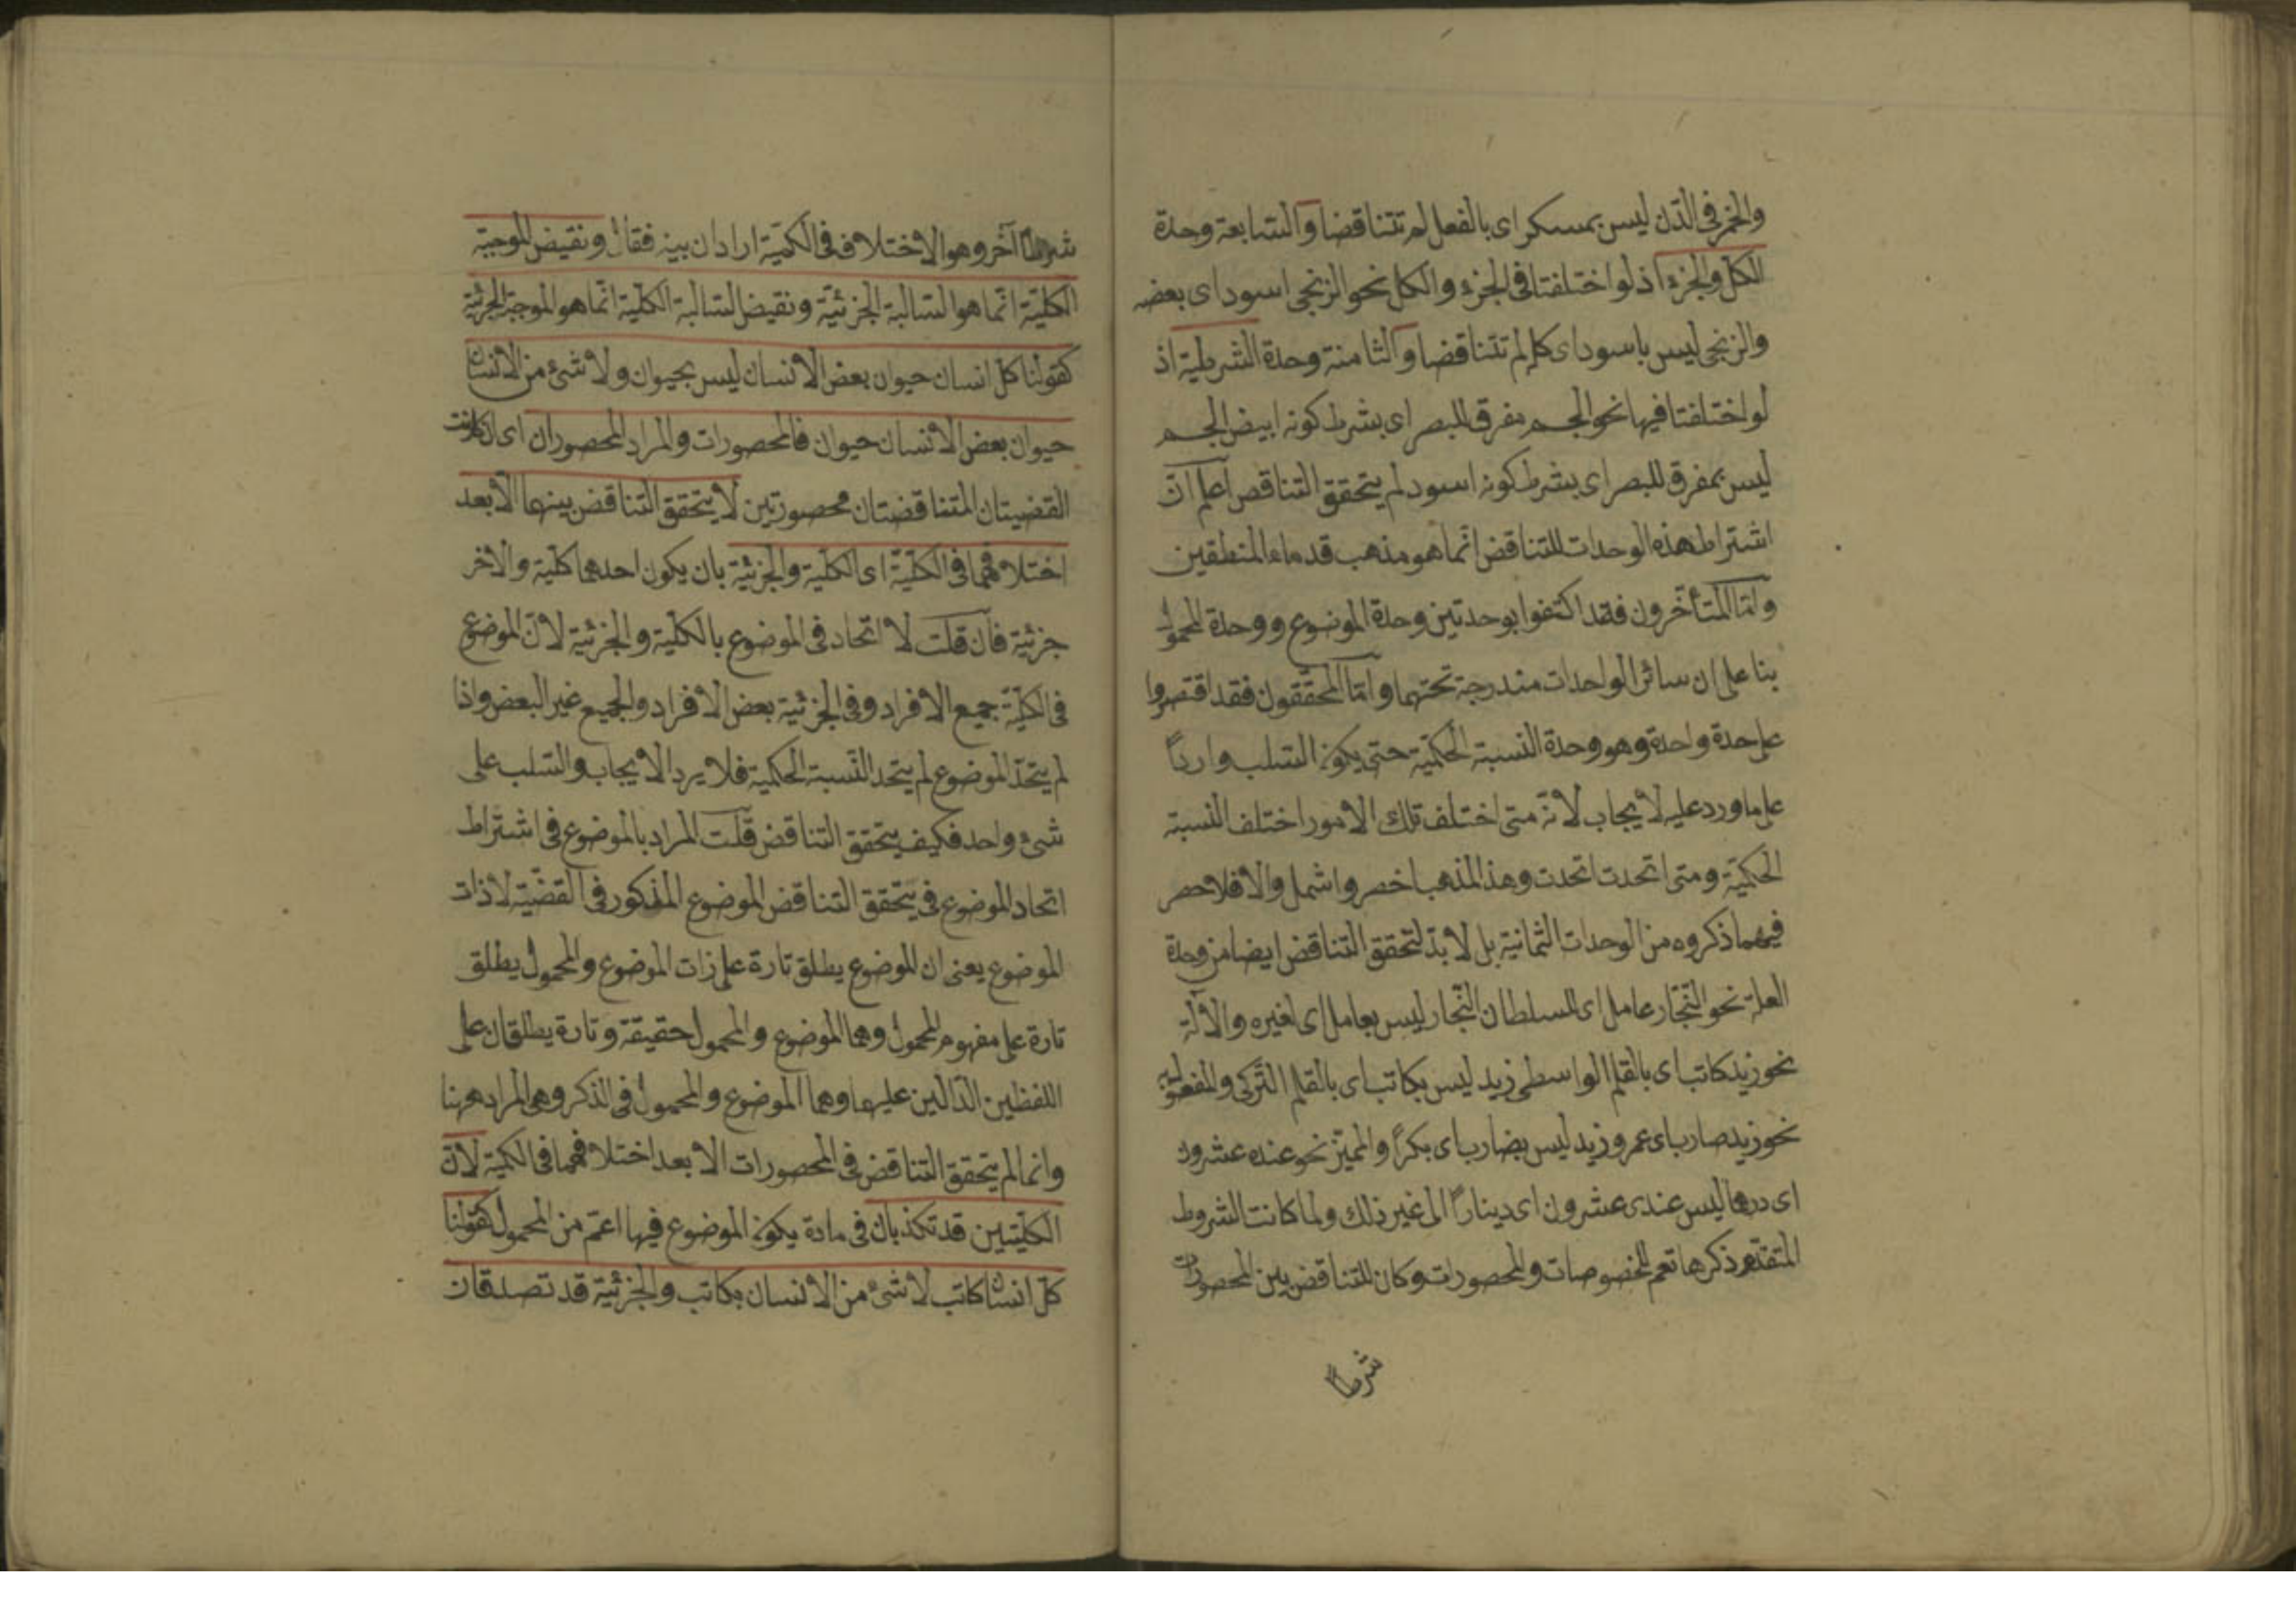 والخمر فى الدّن ليس بمسكر اى بالفعل لم تتناقضا والسّابعة وحدة
الكلّ والجزء اذ لو اختلفتا فى الجزء والكلّ نحو الزنجى اسود اى بعضه
والزنجى ليس باسود اى كله لم تتناقضا والثامنة وحدة الشرطية اذ
لو اختلفتا فيها نحو الجسم مفرق للبصر اى بشرط كونه ابيض الجسم
ليس بمفرق للبصر اى بشرط كونه اسود لم يتحقق التناقض اعلم انّ
اشتراط هذه الوحدات للتناقض انّما هو مذهب قدماء المنطقين
وامّا المتأخّرون فقد اكتفوا بوحدتين وحدة الموضوع ووحدة المحمول
بنا على ان سائر الواحدات مندرجة تحتهما وامّا المحقّقون فقد اقتصروا
على حدة واحدة وهو وحدة النسبة الحكميّة حتى يكون السّلب واردًا
على ما ورد عليه لايجاب لانّه متى اختلف تلك الامور اختلف النسبة
الحكميّة ومتى اتحدت اتحدت وهذ المذهب اخصر واشمل والا فلا حصر
فيهما ذكروه من الوحدات الثمانية بل لا بدّ لتحقق التناقض ايضا من وحدة
العلة نحو النّجّار عامل اى للسلطان النّجار ليس بعامل اى لغيره والآلة
نحو زيد كاتب اى بالقلم الواسطى زيد ليس بكاتب اى بالقلم التّركى والمفعول به
نحو زيد ضارب اى عمرو زيد ليس بضارب اى بكرًا والمميّز نحو عنده عشرون
اى درهما ليس عندى عشرون اى دينارًا الى غير ذلك ولما كانت الشروط
المتقدّم ذكرها تعم المخصوصات والمحصورات وكان للتناقض بين المحصورات
شرطًا
شرطًا آخر وهو الاختلاف فى الكميّة اراد ان يبينه فقال ونقيض الموجبة
الكليّة انّما هو السّالبة الجزئيّة ونقيض السّالبة الكليّة انّما هو الموجبة الجزئيّة
كقولنا كلّ انسان حيوان بعض الانسان ليس بحيوان ولا شئ من الانسان
حيوان بعض الانسان حيوان فالمحصورات والمراد المحصوران اى ان كانت
القضيتان المتناقضتان محصورتين لا يتحقق التناقض بينهما الا بعد
اختلافهما فى الكليّة اى الكليّة والجزئيّة بان يكون احدهما كليّة والاخر
جزئية فان قلت لا اتّحاد فى الموضوع بالكليّة والجزئيّة لانّ الموضوع
فى الكليّة جميع الافراد وفى الجزئيّة بعض الافراد والجميع غير البعض واذا
لم يتحدّ الموضوع لم يتحد النّسبة الحكمية فلا يرد الايجاب والسّلب على
شئ واحد فكيف يتحقق التناقض قلت المراد بالموضوع فى اشتراط
اتحاد الموضوع فى يتحقق التناقض الموضوع المذكور فى القضيّة لا ذات
الموضوع يعنى ان الموضوع يطلق تارة على ذات الموضوع والمحمول يطلق
تارة على مفهوم المحمول وهما الموضوع والمحمول حقيقة وتارة يطلقان على
اللفظين الدّالين عليهما وهما الموضوع والمحمول فى الذكر وهى المراد ههنا
وانما لم يتحقق التناقض فى المحصورات الا بعد اختلافهما فى الكمية لانّ
الكليّتين قد تكذبان فى مادة يكون الموضوع فيها اعمّ من المحمول كقولنا
كلّ انسان كاتب لا شئ من الانسان بكاتب والجزئيّة قد تصدقان